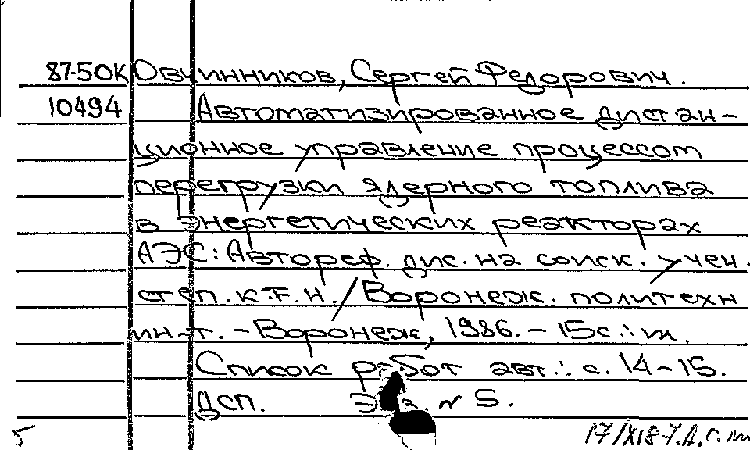 87-50К Овчинников, Сергей Федорович.
10494 Автоматизированное дистан-
ционное управление процессом
перегрузки ядерного топлива
в энергетических реакторах
АЭС: Автореф. дис. на соиск. учен.
степ. к.т.н. / Воронеж. политехн
ин-т. - Воронеж, 1986. - 15с.: ил.
Список работ авт.: с. 14-15.
ДСП. Экз N 5.
5